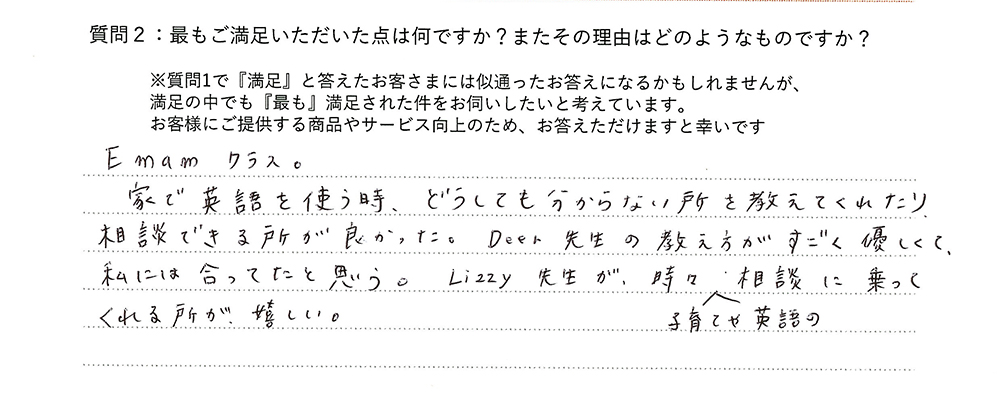 質問２：最もご満足いただいた点は何ですか？またその理由はどのようなものですか？
※質問1で『満足』と答えたお客さまには似通ったお答えになるかもしれませんが、
満足の中でも『最も』満足された件をお伺いしたいと考えています。
お客様にご提供する商品やサービス向上のため、お答えただけますと幸いです
Emam クラス。
家で英語を使う時、どうしても分からない所を教えてくれたり、
相談できる所が良かった。Deer先生の教え方がすごく優しくて、
私には合ってたと思う。Lizzy先生が、時々相談に乗って
子育てや英語の
くれる所が、嬉しい。